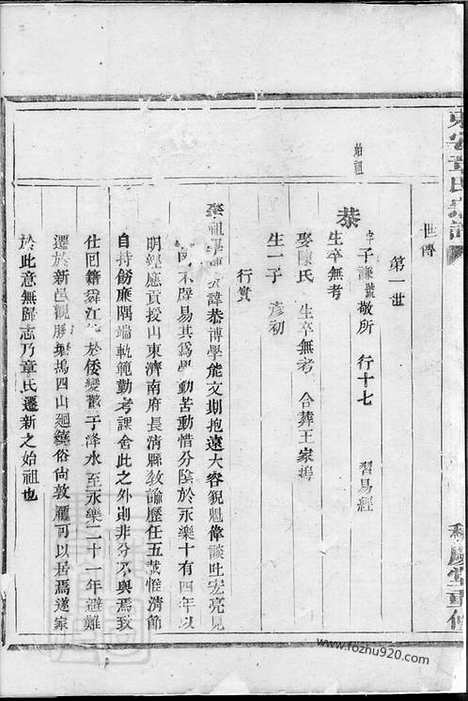 世傳
第一世
始祖
恭
字子謙號敬所 行十七 習易經
生卒無考
娶陳氏 生卒無考 合葬王家塢
生一子 彥初
行實
諱恭博學能文期抱遠大容貌魁偉談吐宏亮見
易其為學動苦動惜分陰於永樂十有四年以
明經應貢授山東濟南府長清縣敎諭歷任五載惟清節
自持飭廉隅端軌範勤考課舍此之外則非分不與焉致
仕回籍 江 於倭變 子 水至永樂二十一年避難
遷於新邑觀勝 塢四山廻繞俗尙敦龐可以居焉遂家
於此意無歸志乃章氏遷新之始祖也
章氏宗譜
慶堂重修
www.fozhu920.com